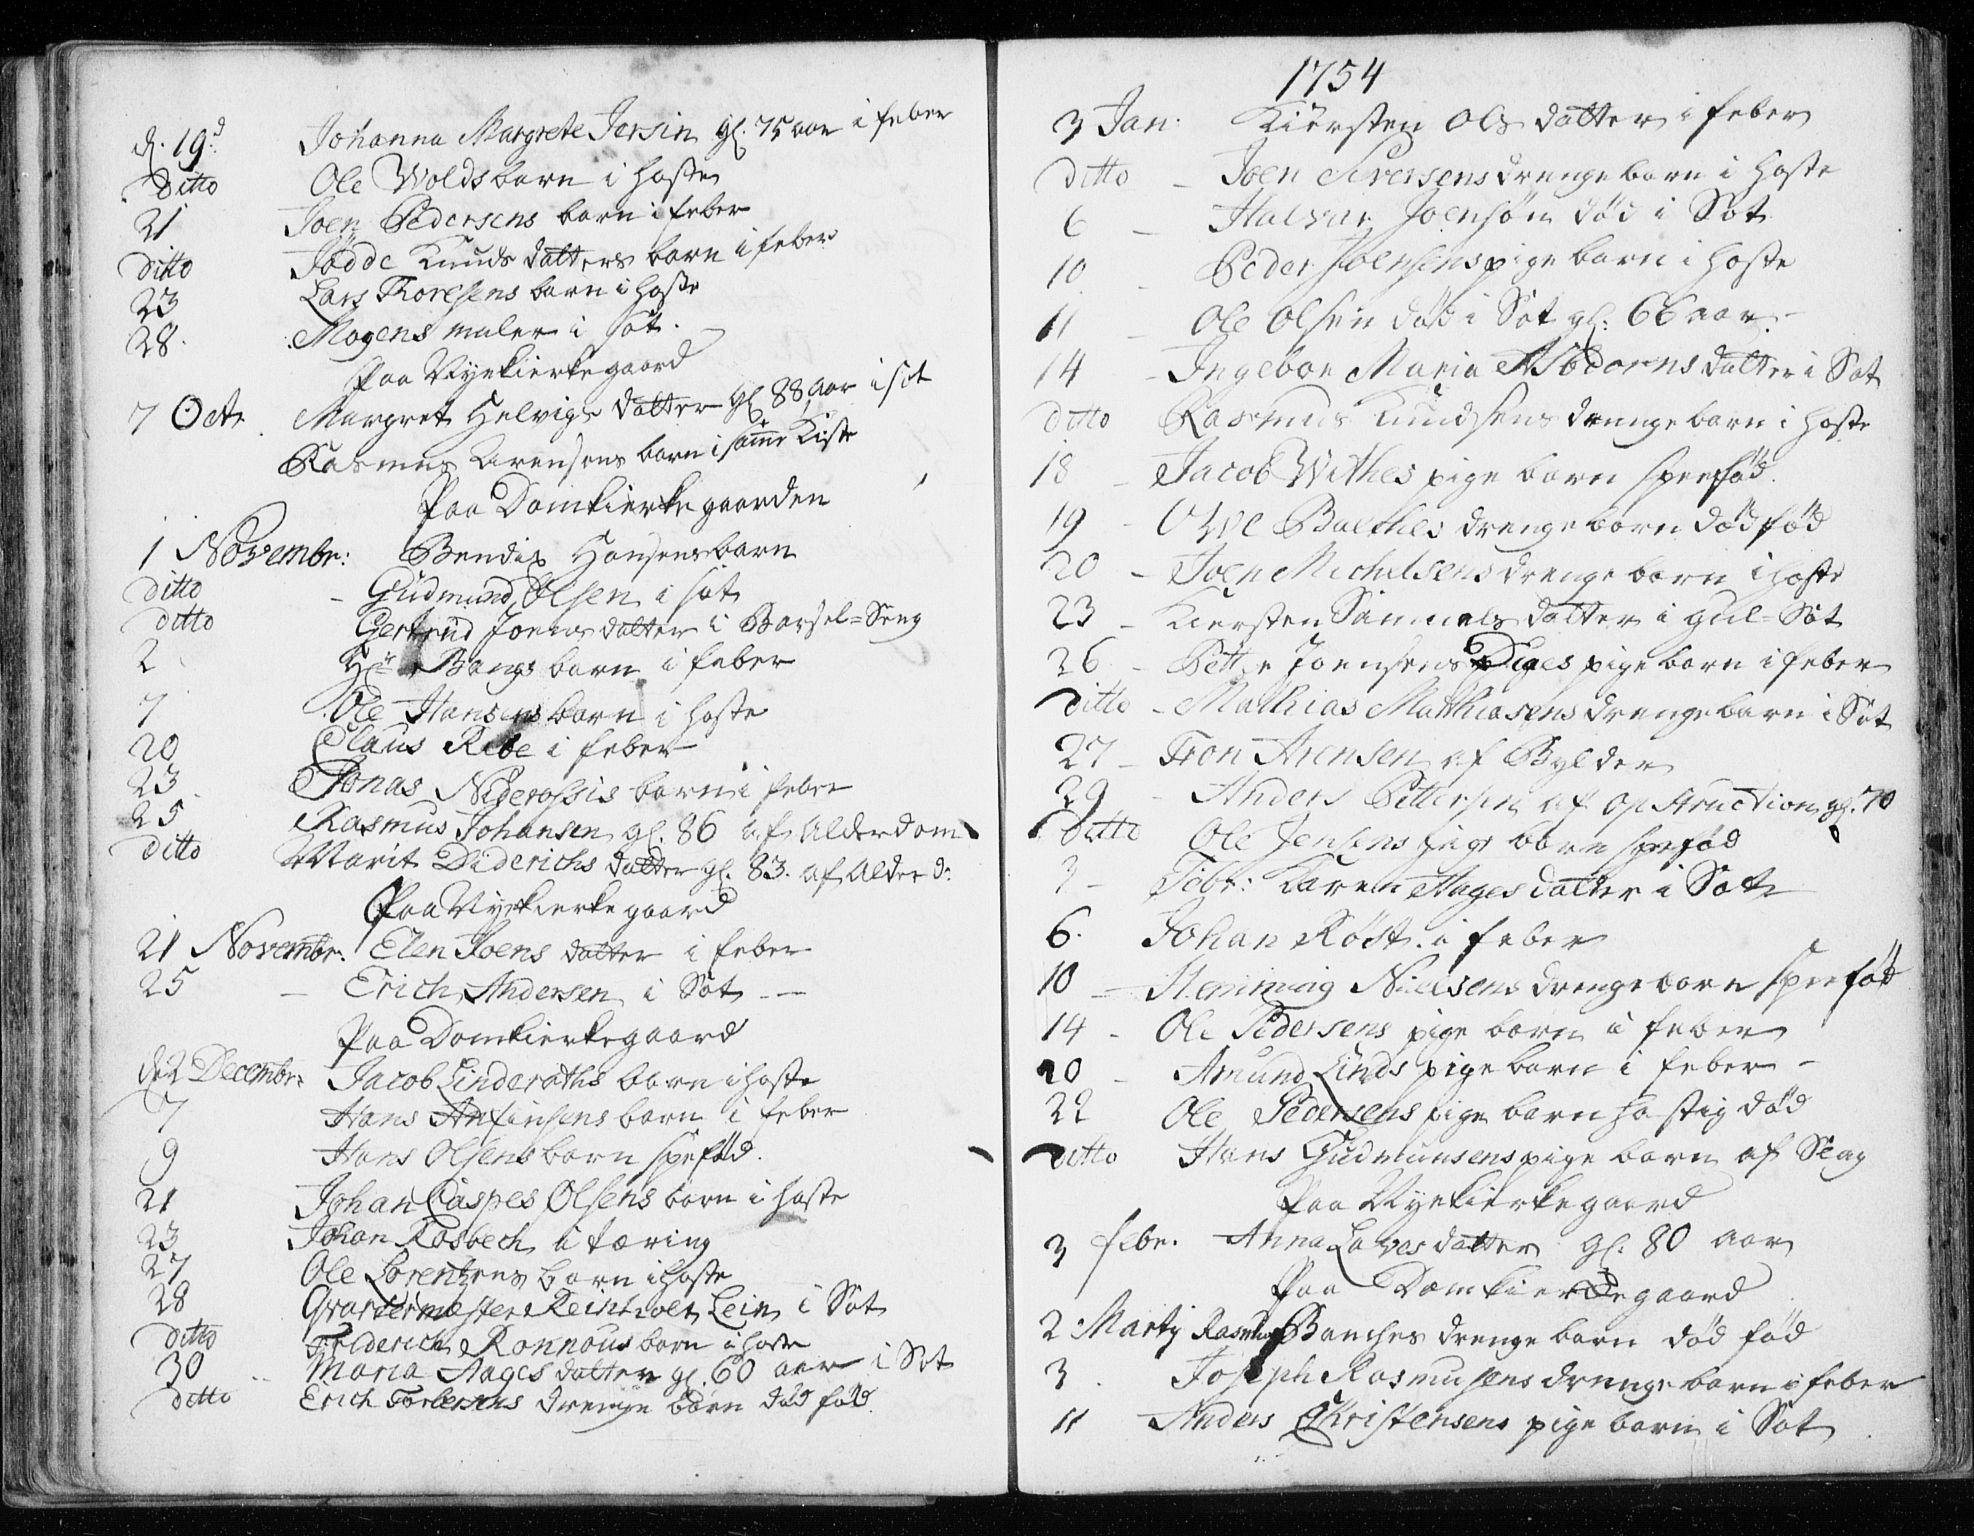 d. 19d Johanna Margrete Jersin gl. 75 aar i feber
Ditto Ole Wolds barn i hoste
21 Joen Pedersens barn i feber
Ditto Jødde Knuds datters barn i feber
23 Lars Thoresens barn i hoste
28. Mogens maler i Sot.
Paa Nyekierkegaard
7 Octr. Margret Helvigs datter gl. 88 aar i sot
Rasmus Arensens barn i samme Kiste
Paa Domkierkegaarden
1 Novembr: Bendix Hansens barn
ditto - Gudmund Olsen i sot
ditto Gertrud Joens datter i Barsel=Seng
2 Hr. Bangs barn i feber
7 Ole Hansens barn i hoste
20 Claus Ribe i feber
23 Jonas Niderossis barn i feber
25 Rasmus Johansen gl. 86 af Alderdom
ditto Marit Diderichs datter gl. 83. af Alder d:
Paa Nyekierkegaard
21 Novembr. Elen Joens datter i feber
25 - Erich Andersen i Sot - -
Paa Domkierkegaard
d. 2 Decembr: Jacob Linderoths barn i hoste
7 Hans Anfinsens barn i feber
9 Hans Olsens barn spefød.
21 Johan Caspes Olsens barn i hoste
23 Johan Rosbech i tæring
27 Ole Lorentzens barn i hoste
28 Qvartermester Reinholt Lein i Sot
ditto Friderich Ronnous barn i hoste
30 Maria Aages datter gl. 60 aar i Sot
ditto Erich Torbersens drenge barn død fød.
1754
3 Jan: Kiersten Ols datter i feber
ditto - Joen Siversens drenge barn i hoste
6 - Halvar Joensøn død i Sot
10 - Peder Joensens pige barn i hoste
11 - Ole Olsen død i Sot gl: 66 aar. -
14 - Ingebor Maria Asbiorns datter i Sot
ditto Rasmus Knudsens drenge barn i hoste
18 - Jacob Withes pige barn speefød.
19 - Ove Balthes drenge barn død fød
20 - Joen Michelsens drenge barn i hoste
23 - Kiersten Samuels datter i gul=Sot
26 - Petter Joensens Diges pige barn i feber
Ditto - Mathias Mathiasens drenge barn i Sot
27 - Tron Arensen af Bylder
29 - Anders Pettersen af opstruction gl. 70
Ditto Ole Jensens pige barn spefød
3 - Febr: Karen Hages datter i Sot
6. Johan Røst. i feber
10 - Hemming Nielsens drenge barn speefød
14 - Ole Pedersens pige barn i feber
20 - Amund Linds pige barn i feber -
22 Ole Pedersens pige barn hastig død
ditto Hans Gudmunsens pige barn af Slag
Paa Nyekierkegaard
3 febr. Anna Laves datter gl. 80 aar
Paa Domkierkegaard
2 Martj Rasmus Banches drenge barn død fød
3. Joseph Rasmusens drenge barn i feber
11 - Anders Christensens pige barn i Sot